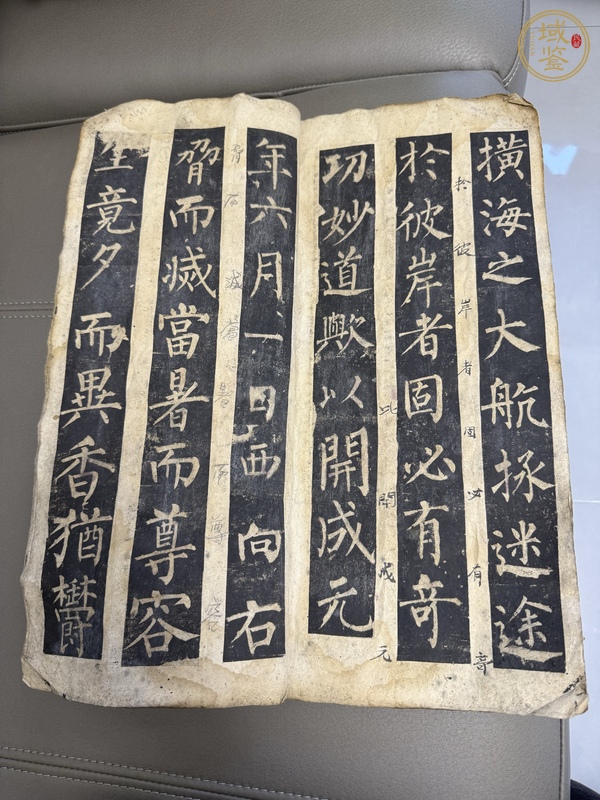 橫海之大航拯迷途
於彼岸者固必有奇
於彼岸者固必有奇
開成元
功妙道歟以開成元
年六月一日西向右
脅而滅當暑而尊容
脅而滅當暑而尊容
生竟夕而異香猶鬱
域鉴